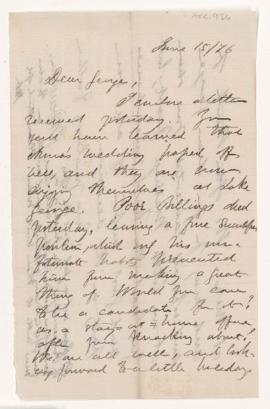 June 15/76
Dear George,
I enclose a letter
received yesterday. You
will have learned that
wedding passed off
well, and they are now
enjoying themselves at Lake
George. Poor Billings died
yesterday, leaving a fine
position which only his un-
fortunate habits prevented
him from making a great
thing of. Would you care
to be a candidate for it?
as a stay-at-home office
after your knocking about?
We are all well, and look-
ing forward to a little holiday